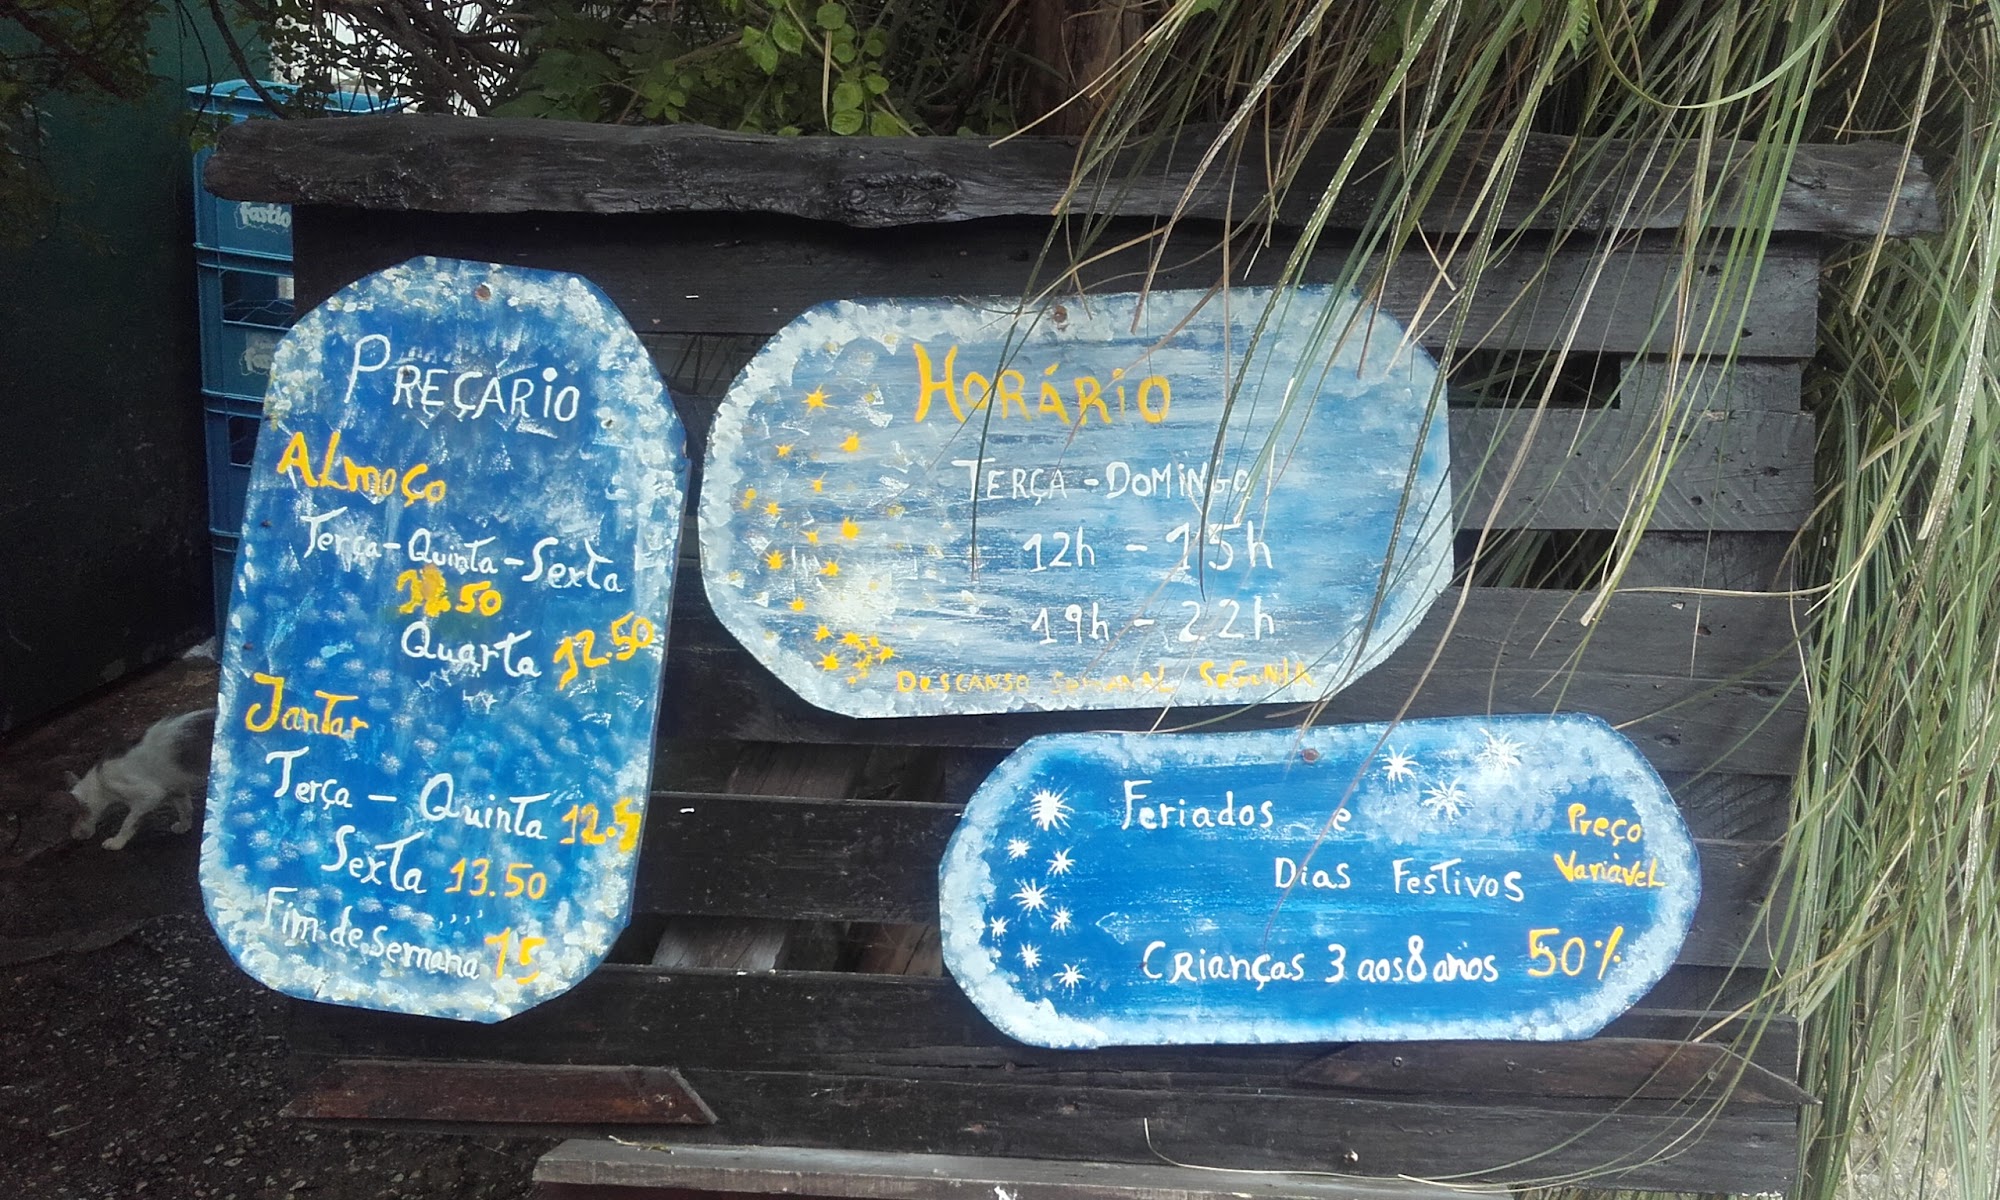 PREÇÁRIO
ALmoço
Terça-Quinta-Sexta
.50
Quarta 12.50
Jantar
Terça - Quinta 12.5
Sexta 13.50
Fim de Semana 15
HORÁRIO
TERÇA-DOMINGO
12h - 15h
19h - 22h
DESCANSO SEMANAL SEGUNDA
Feriados e
Dias Festivos
Preço
Variável
Crianças 3 aos 8 anos 50%
fastio